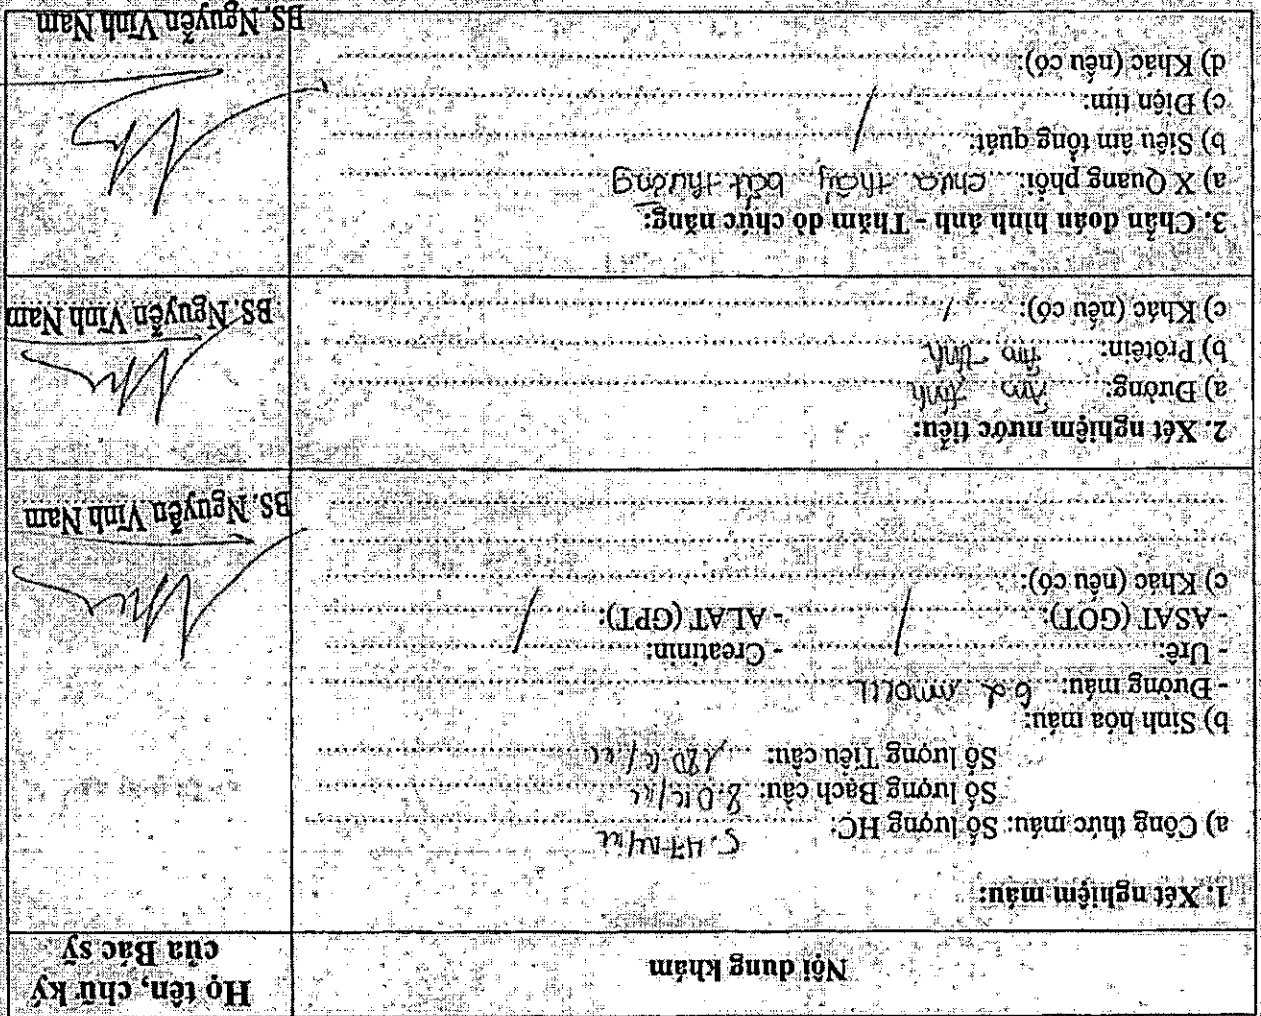 Nội dung khám
Họ tên, chữ ký
của Bác sỹ
1. Xét nghiệm máu:
a) Công thức máu: Số lượng HC: 5.47 M/uL
Số lượng Bạch cầu: 8.0 K/uL
Số lượng Tiểu cầu: 180 K/uL
b) Sinh hóa máu:
- Đường máu: mmol/L
- Urê: / - Creatinin: /
- ASAT (GOT): / - ALAT (GPT): /
c) Khác (nếu có):
BS. Nguyễn Vĩnh Nam
2. Xét nghiệm nước tiểu:
a) Đường: Âm tính
b) Prôtêin: Âm tính
c) Khác (nếu có): /
BS. Nguyễn Vĩnh Nam
3. Chẩn đoán hình ảnh - Thăm dò chức năng:
a) X Quang phổi: chưa thấy bất thường
b) Siêu âm tổng quát: /
c) Điện tim: /
d) Khác (nếu có):
BS. Nguyễn Vĩnh Nam